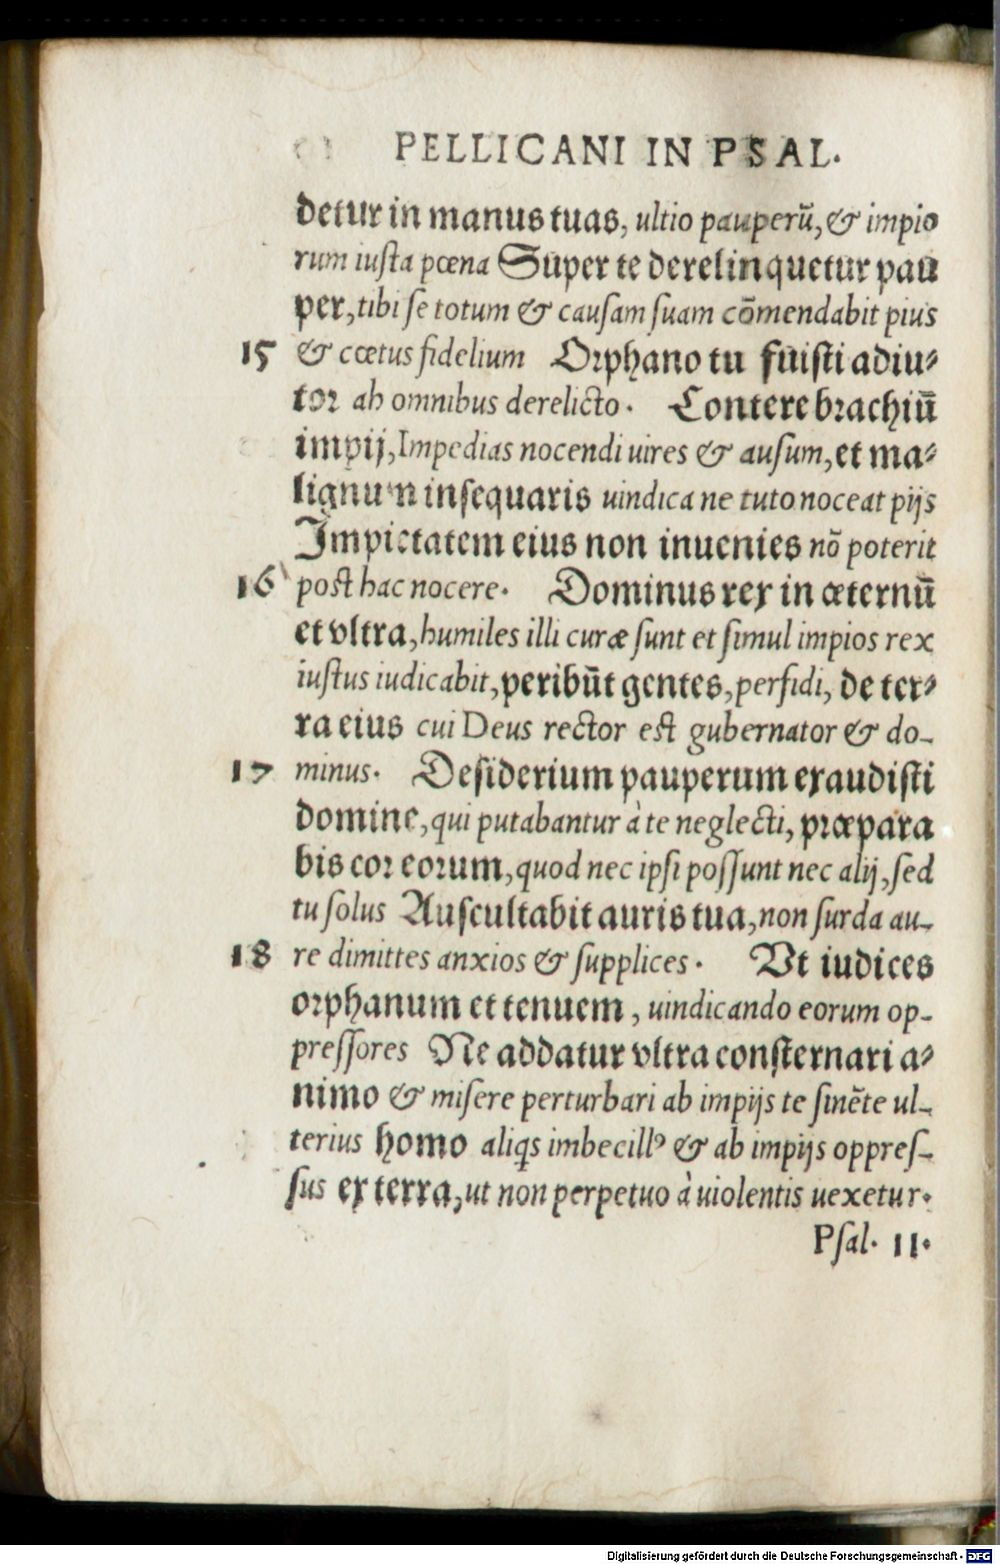 PELLICANI IN PSAL.
detur in manus tuas, ultio pauperũ, & impio
rum iusta pœna Super te derelinquetur pau
per, tibi se totum & causam suam cõmendabit pius
15 & cœtus fidelium Orphano tu fuisti adiu⸗
tor ab omnibus derelicto. Contere brachiũ
impij, Impedias nocendi uires & ausum, et ma⸗
lignum insequaris uindica ne tuto noceat pijs
Impietatem eius non inuenies nõ poterit
16 post hac nocere. Dominus rex in æternũ
et vltra, humiles illi curæ sunt et simul impios rex
iustus iudicabit, peribũt gentes, perfidi, de ter⸗
ra eius cui Deus rector est gubernator & do-
17 minus. Desiderium pauperum exaudisti
domine, qui putabantur à te neglecti, præpara
bis cor eorum, quod nec ipsi possunt nec alij, sed
tu solus Auscultabit auris tua, non surda au-
18 re dimittes anxios & supplices. Vt iudices
orphanum et tenuem, uindicando eorum op-
pressores Ne addatur vltra consternari a⸗
nimo & misere perturbari ab impijs te sinẽte ul-
terius homo aliqs imbecillꝰ & ab impijs oppres-
sus ex terra, ut non perpetuo à uiolentis uexetur.
Psal. 11.
Digitalisierung gefördert durch die Deutsche Forschungsgemeinschaft - DFG